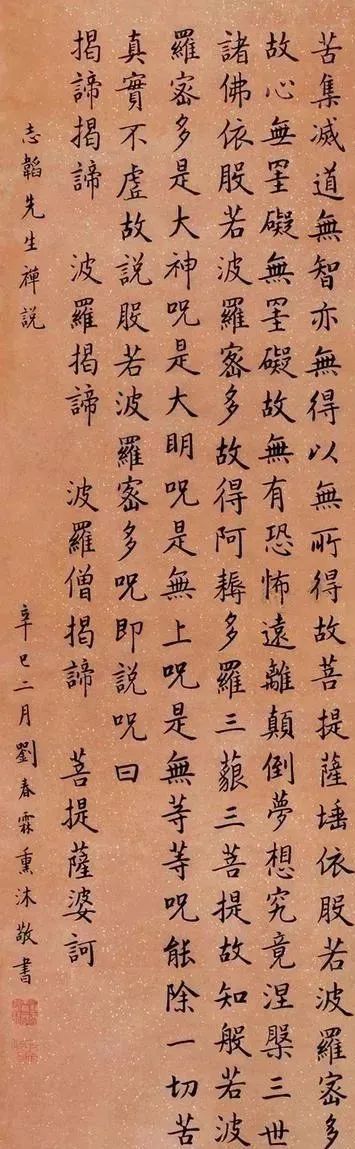 苦集滅道無智亦無得以無所得故菩提薩埵依般若波羅密多
故心無罣礙無罣礙故無有恐怖遠離顛倒夢想究竟涅槃三世
諸佛依般若波羅密多故得阿耨多羅三藐三菩提故知般若波
羅密多是大神呪是大明呪是無上呪是無等等呪能除一切苦
真實不虛故説般若波羅密多呪即説呪曰
揭諦揭諦 波羅揭諦 波羅僧揭諦 菩提薩婆訶
志韜先生禪説
辛巳二月劉春霖熏沐敬書